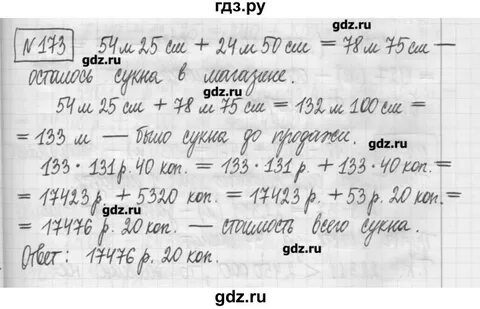 гдз.ру
№173 54 м 25 см + 24 м 50 см = 78 м 75 см —
gdz.ru gdz.ru
осталось сукна в магазине.
gdz.ru
54 м 25 см + 78 м 75 см = 132 м 100 см =
= 133 м — было сукна до продажи.
gdz.ru gdz.ru
133 · 131 р. 40 коп. = 133 · 131 р. + 133 · 40 коп. =
gdz.ru
= 17423 р. + 5320 коп. = 17423 р. + 53 р. 20 коп. =
gdz.ru
= 17476 р. 20 коп. — стоимость всего сукна.
gdz.ru gdz.ru
Ответ: 17476 р. 20 коп.
gdz.ru